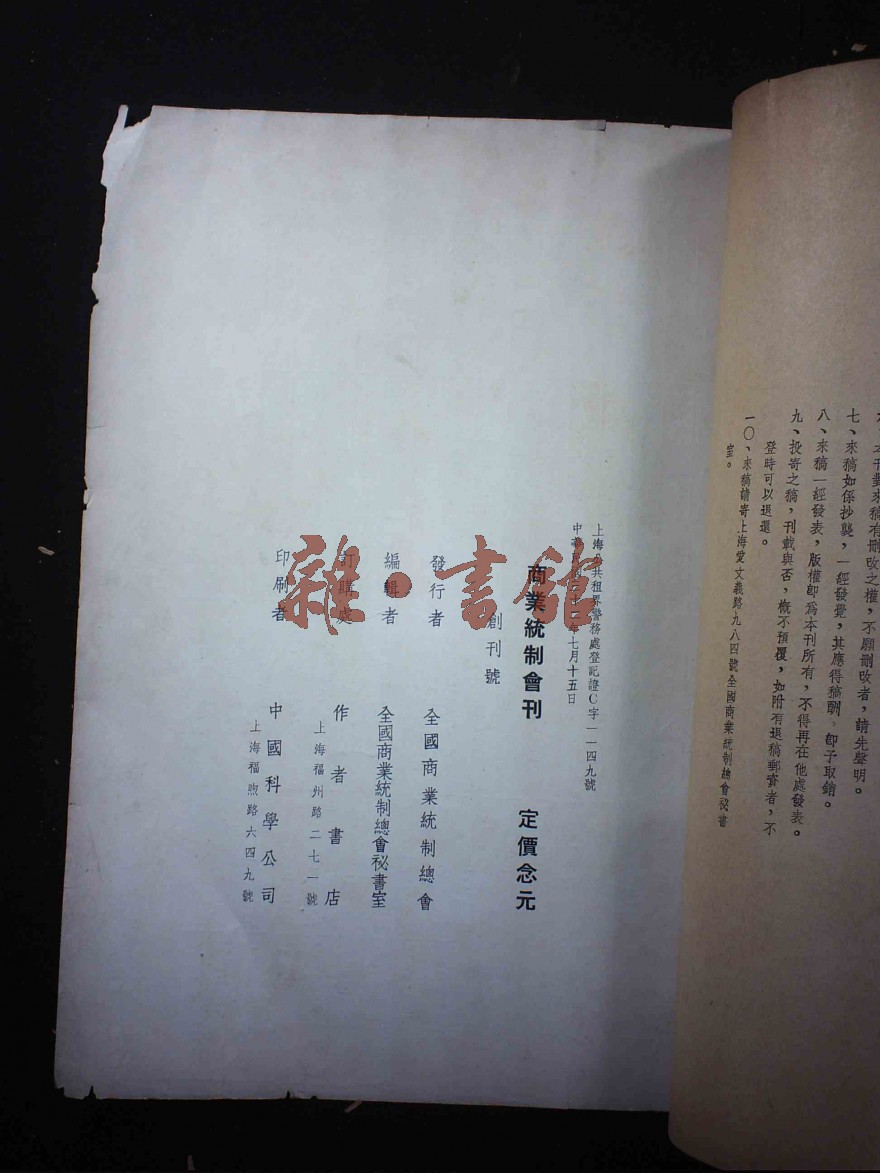 七、來稿如係抄襲，一經發覺，其應得稿酬，卽予取銷。
八、來稿一經發表，版權卽爲本刊所有，不得再在他處發表。
九、投寄之稿，刊載與否，概不預覆，如附有退稿郵資者，不
登時可以退還。
一〇、來稿請寄上海愛文義路九八四號全國商業統制總會祕書
室。
上海公共租界警務處登記證C字一一四九號
中華民國三十二年七月十五日
商業統制會刊 定價念元
創刊號
發行者 全國商業統制總會
編輯者 全國商業統制總會祕書室
訂購處 作者書店
上海福州路二七一號
印刷者 中國科學公司
上海福煦路六四九號
雜·書館